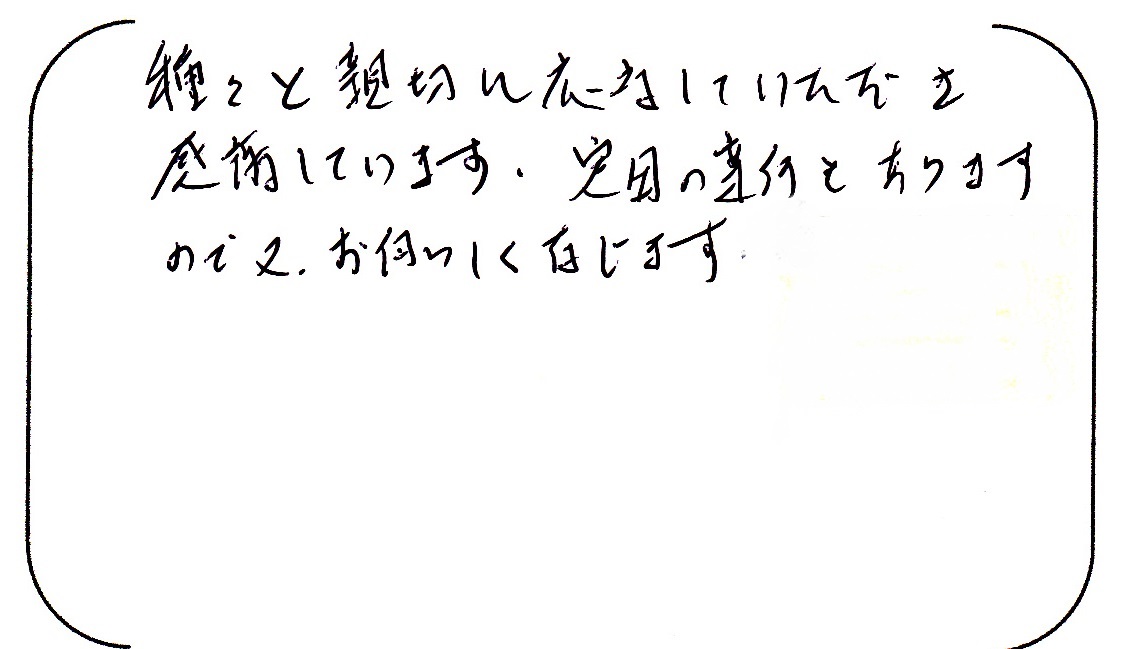 種々と親切に応対していただき
感謝しています. 定目の事付もあります
ので又. お伺いしく存じます.